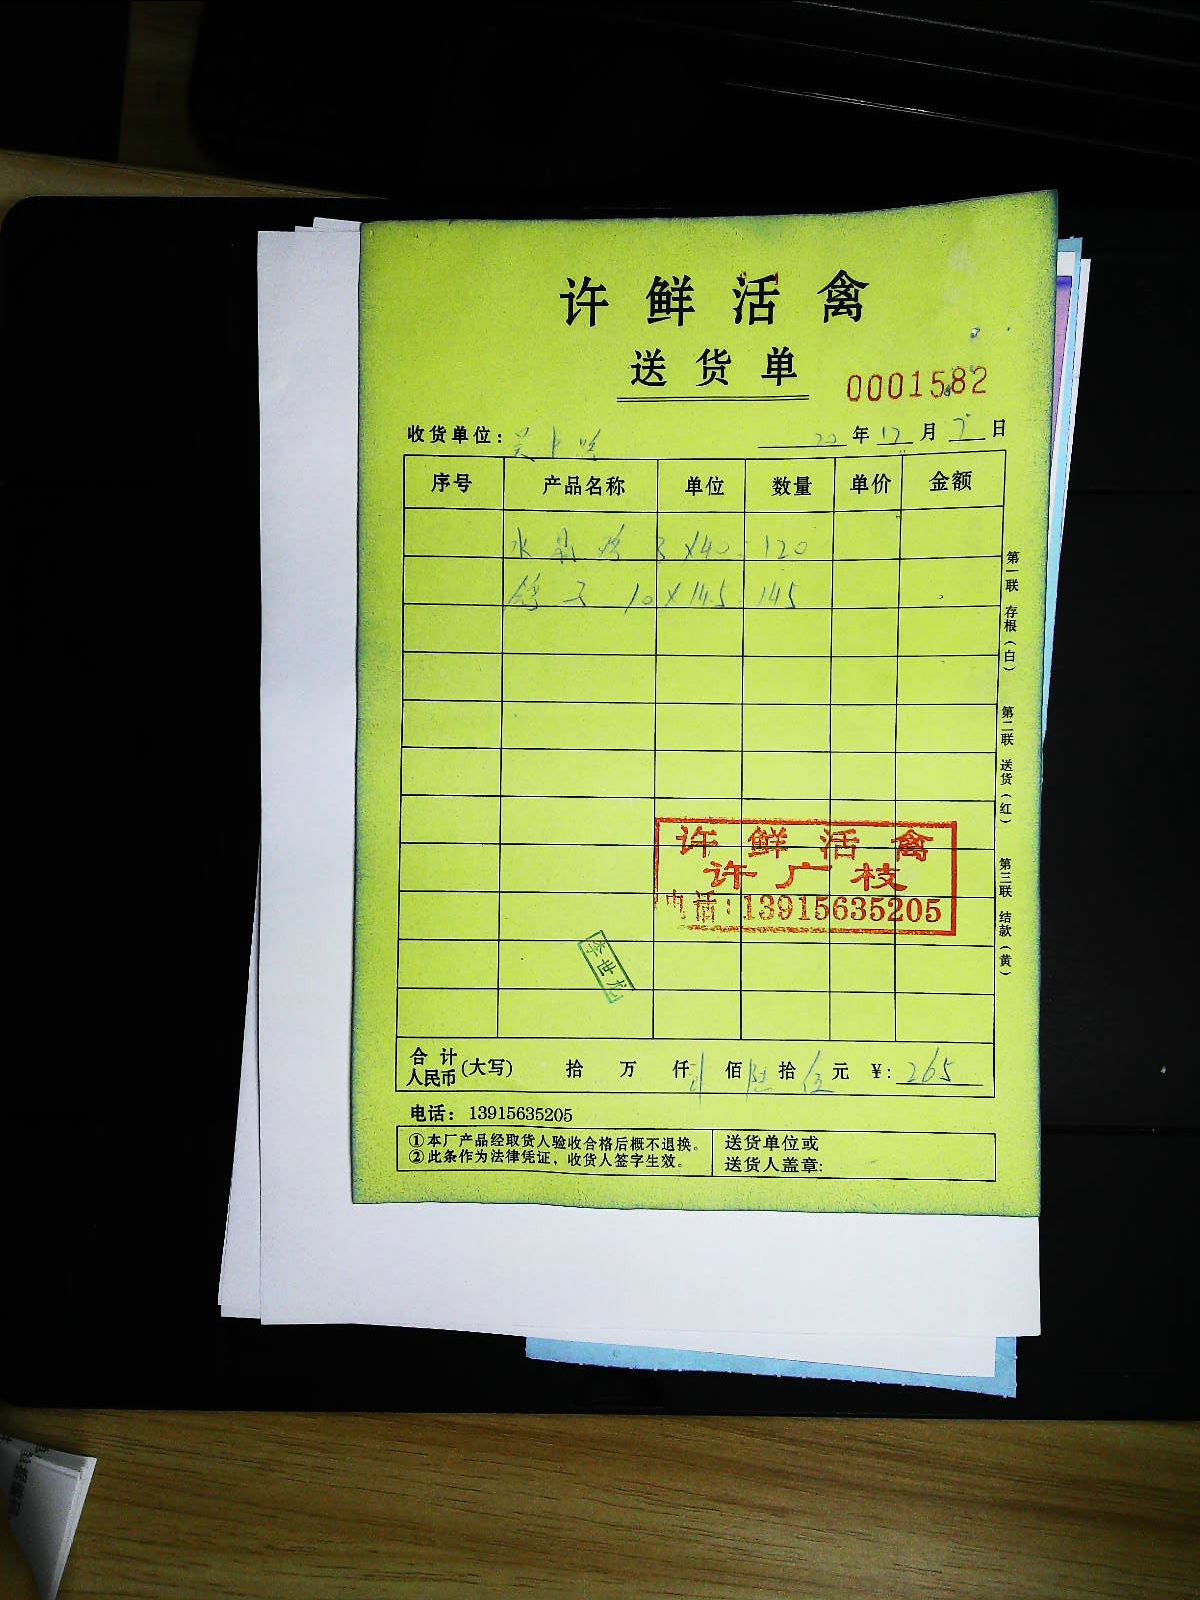 许鲜活禽
送货单
0001582
收货单位: 吴
20年12月 日
序号 产品名称 单位 数量 单价 金额
水晶鸡 3×40=120
鸽子 10×14.5=145
许鲜活禽
许广枝
电话:13915635205
李世龙
合计人民币(大写) 拾 万 仟 贰佰陆拾伍元 ¥:265
电话: 13915635205
①本厂产品经取货人验收合格后概不退换。
②此条作为法律凭证,收货人签字生效。
送货单位或
送货人盖章:
第一联 存根(白)
第二联 送货(红)
第三联 结款(黄)